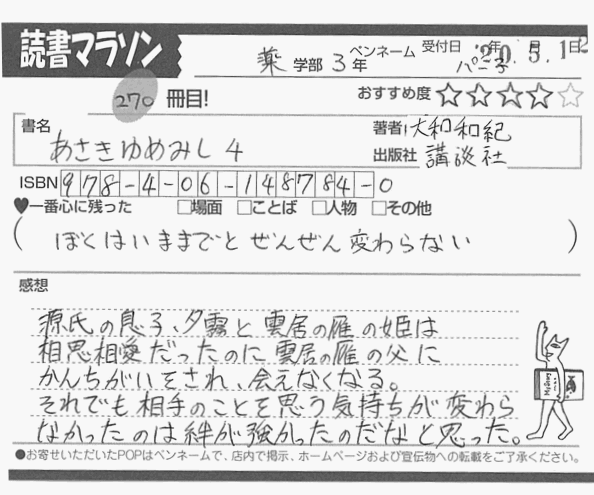 読書マラソン
薬 学部 3 年 ペンネーム パニ子 受付日 20.5.12
270 冊目!
おすすめ度 ☆☆☆☆☆
書名
あさきゆめみし 4
著者 大和和紀
出版社 講談社
ISBN 978-4-06-148784-0
♥一番心に残った □場面 □ことば □人物 □その他
( ぼくはいままでと ぜんぜん変わらない )
感想
源氏の息子、夕霧と雲居の雁の姫は
相思相愛だったのに雲居の雁の父に
かんちがいをされ、会えなくなる。
それでも相手のことを思う気持ちが変わら
なかったのは絆が強かったのだなと思った。
●お寄せいただいたPOPはペンネームで、店内で掲示、ホームページおよび宣伝物への転載をご了承ください。